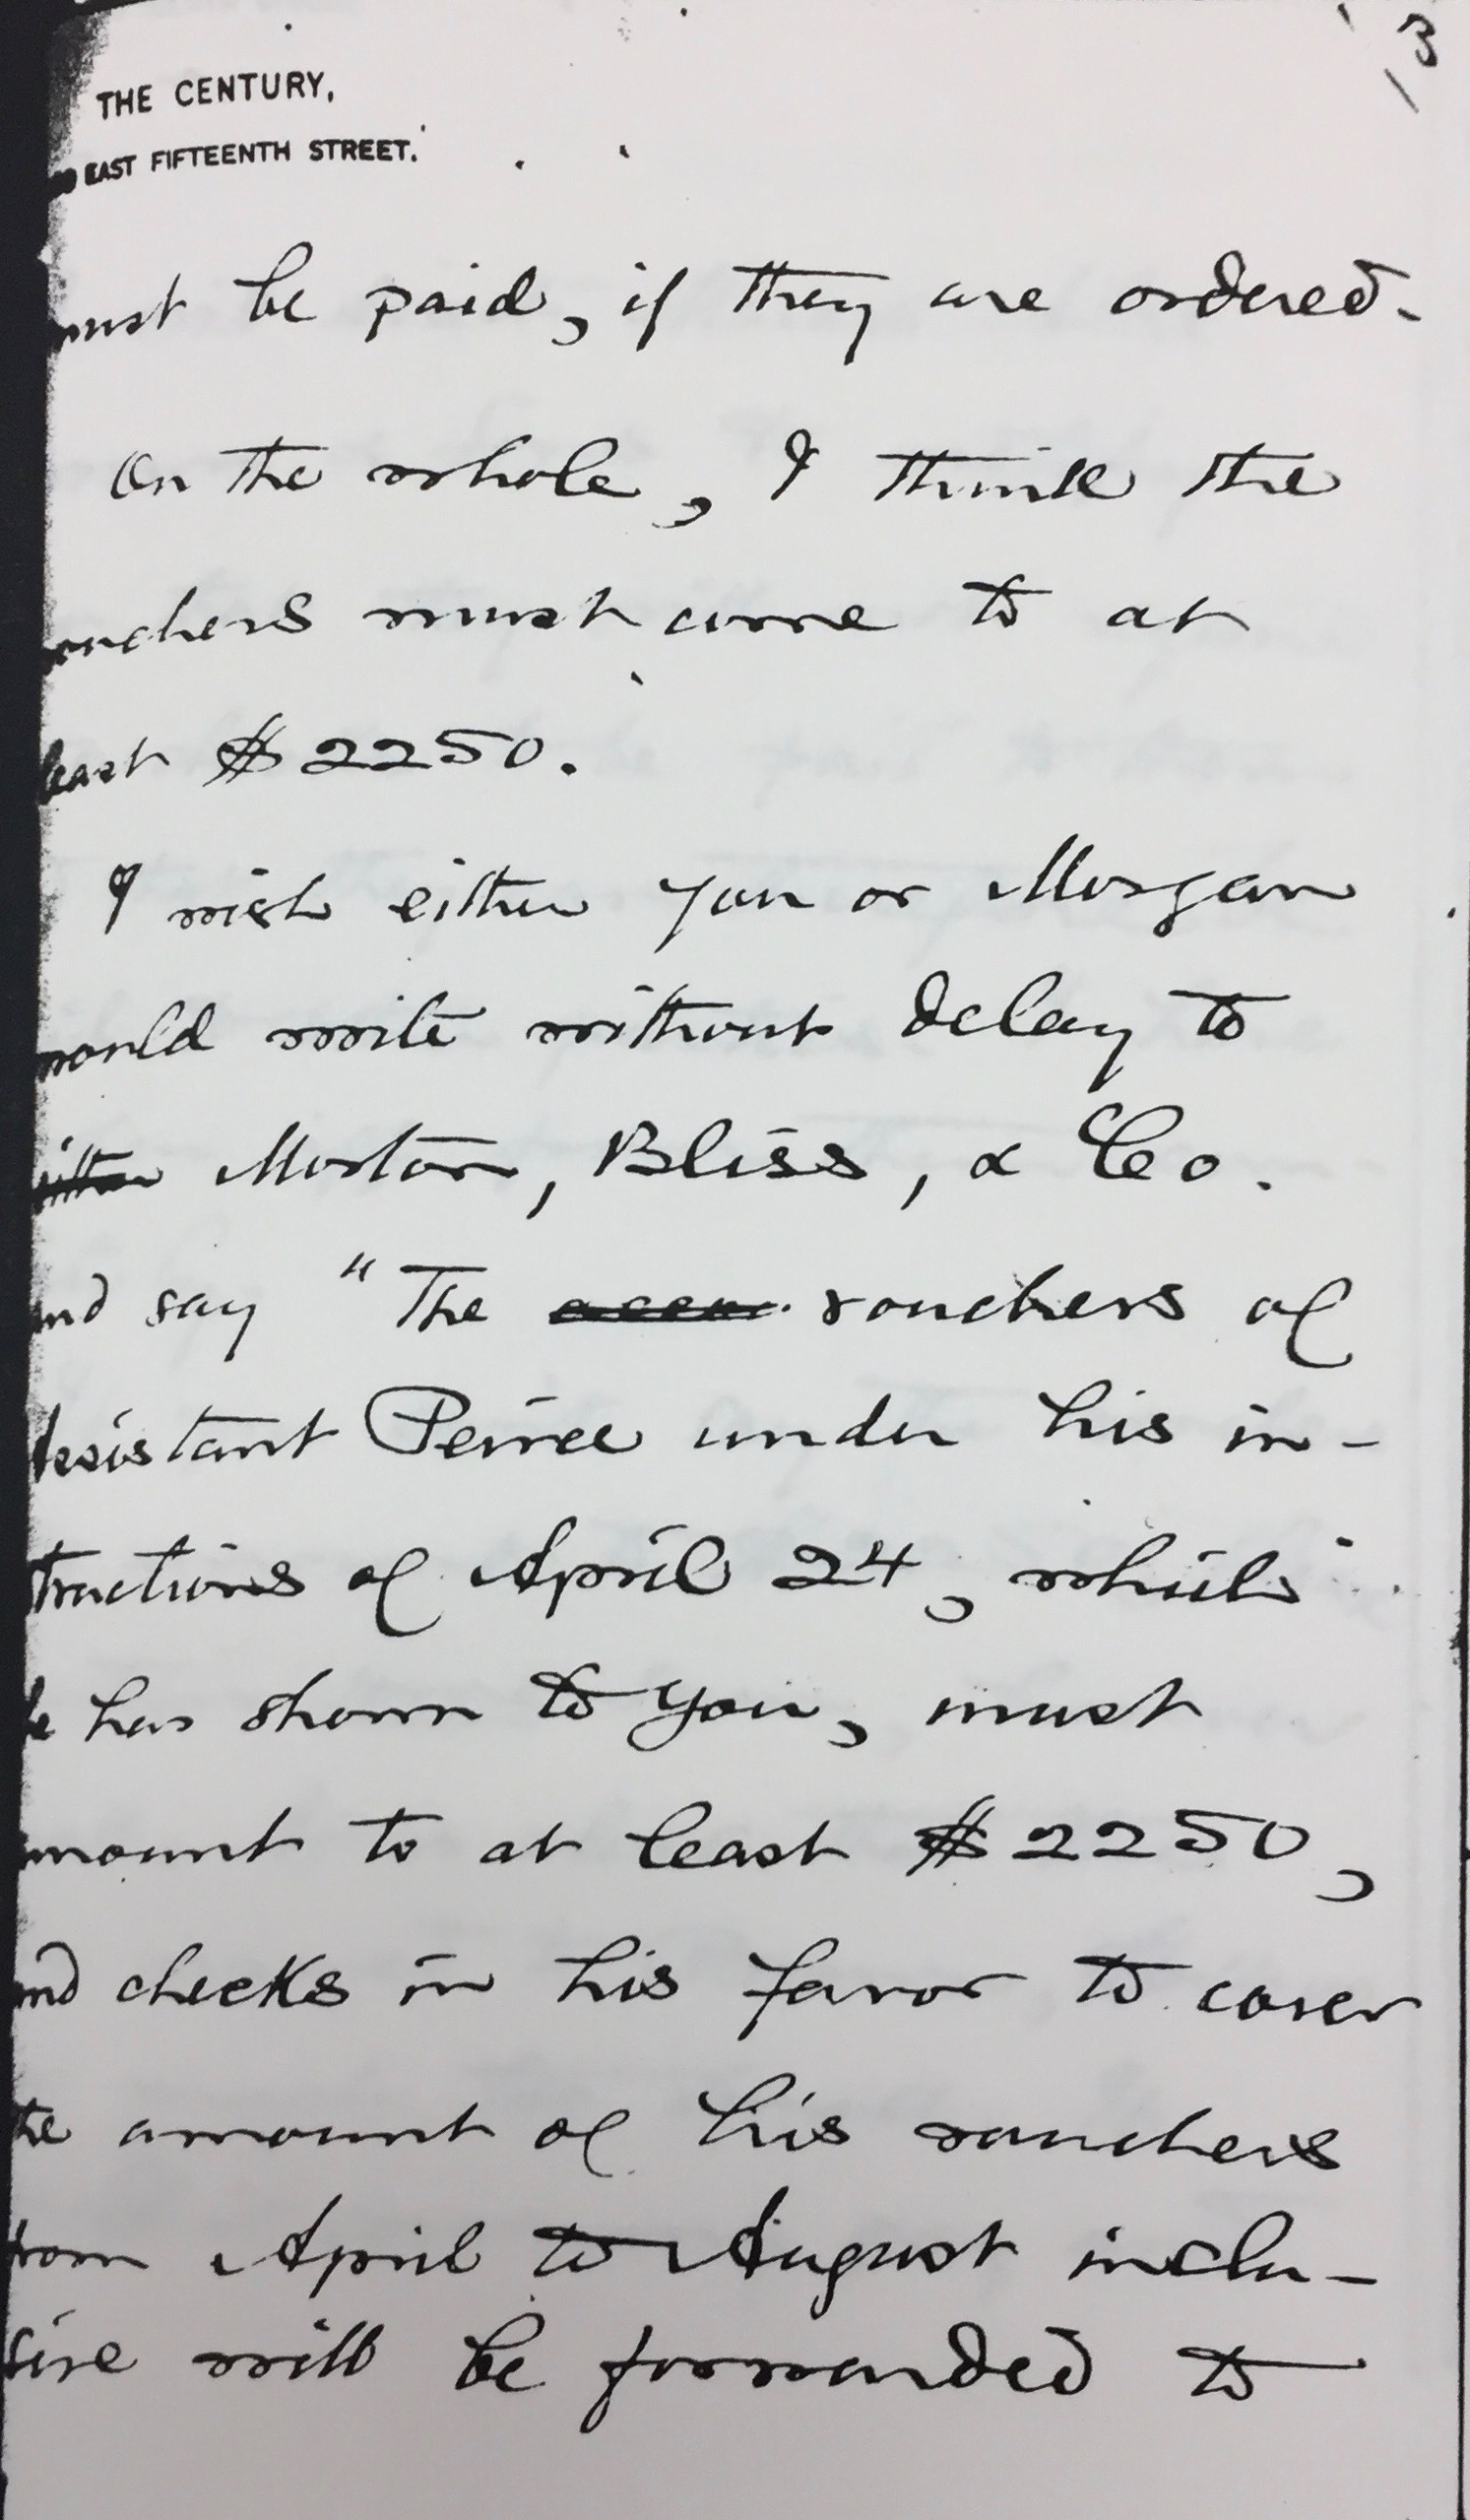 13
THE CENTURY,
EAST FIFTEENTH STREET.
must be paid, if they are ordered.
On the whole, I think the
vouchers must come to at
least $2250.
I wish either you or Morgan
would write without delay to
either Morton, Bliss, & Co.
and say "The accou vouchers of
Assistant Peirce under his in-
structions of April 24, which
he has shown to you, must
amount to at least $2250,
and checks in his favor to cover
the amount of his vouchers
from April to August inclu-
sive will be forwarded to